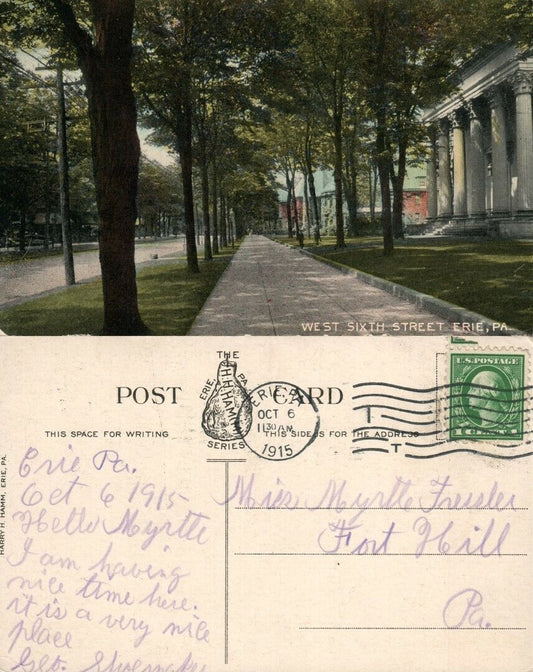 WEST SIXTH STREET ERIE, PA.
THE
H.H.HAMM
ERIE PA
SERIES
POST CARD
ERIE, PA.
OCT 6
11 30 AM
1915
U.S. POSTAGE
1 CENT 1
THIS SPACE FOR WRITING
THIS SIDE IS FOR THE ADDRESS
HARRY H. HAMM, ERIE, PA.
Erie Pa.
Oct 6 1915
Hello Myrtle
I am having
nice time here.
it is a very nice
place
Geo. Shoemaker
Miss Myrtle Fressler
Fort Hill
Pa.